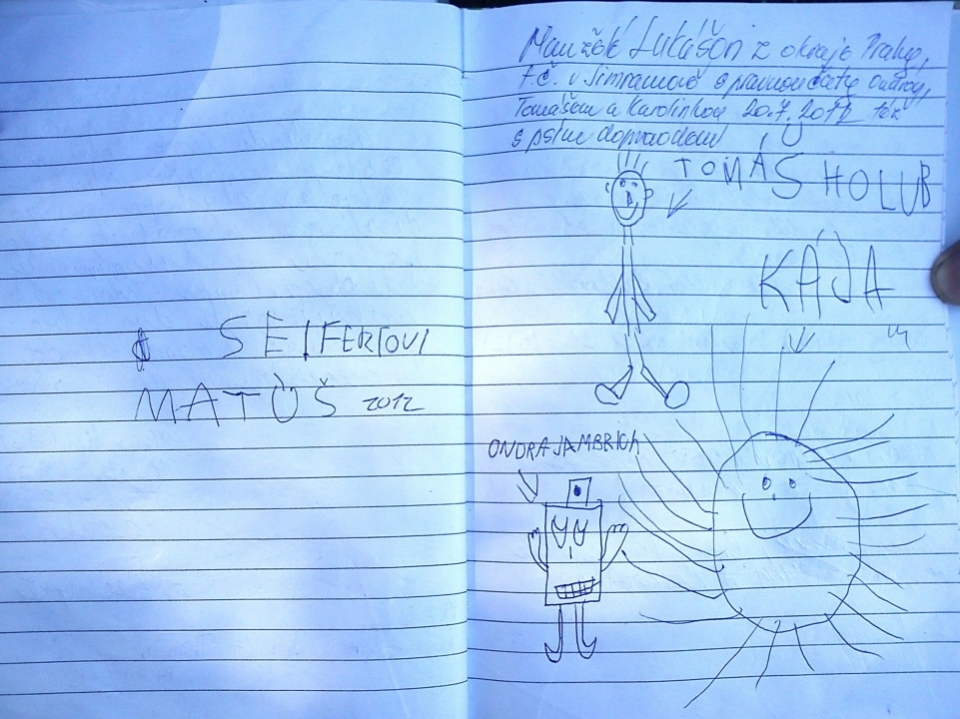 SEIFERTOVI
MATÚŠ 2012
Manžel Lukášon z okraje Prahy,
t.č. v Jimramově s pravnoučaty Ondrou,
Tomášem a Karolínkou 20.7.2012 též
s doprovodem
TOMÁŠ HOLUB
KÁJA
ONDRA JAMBRICH